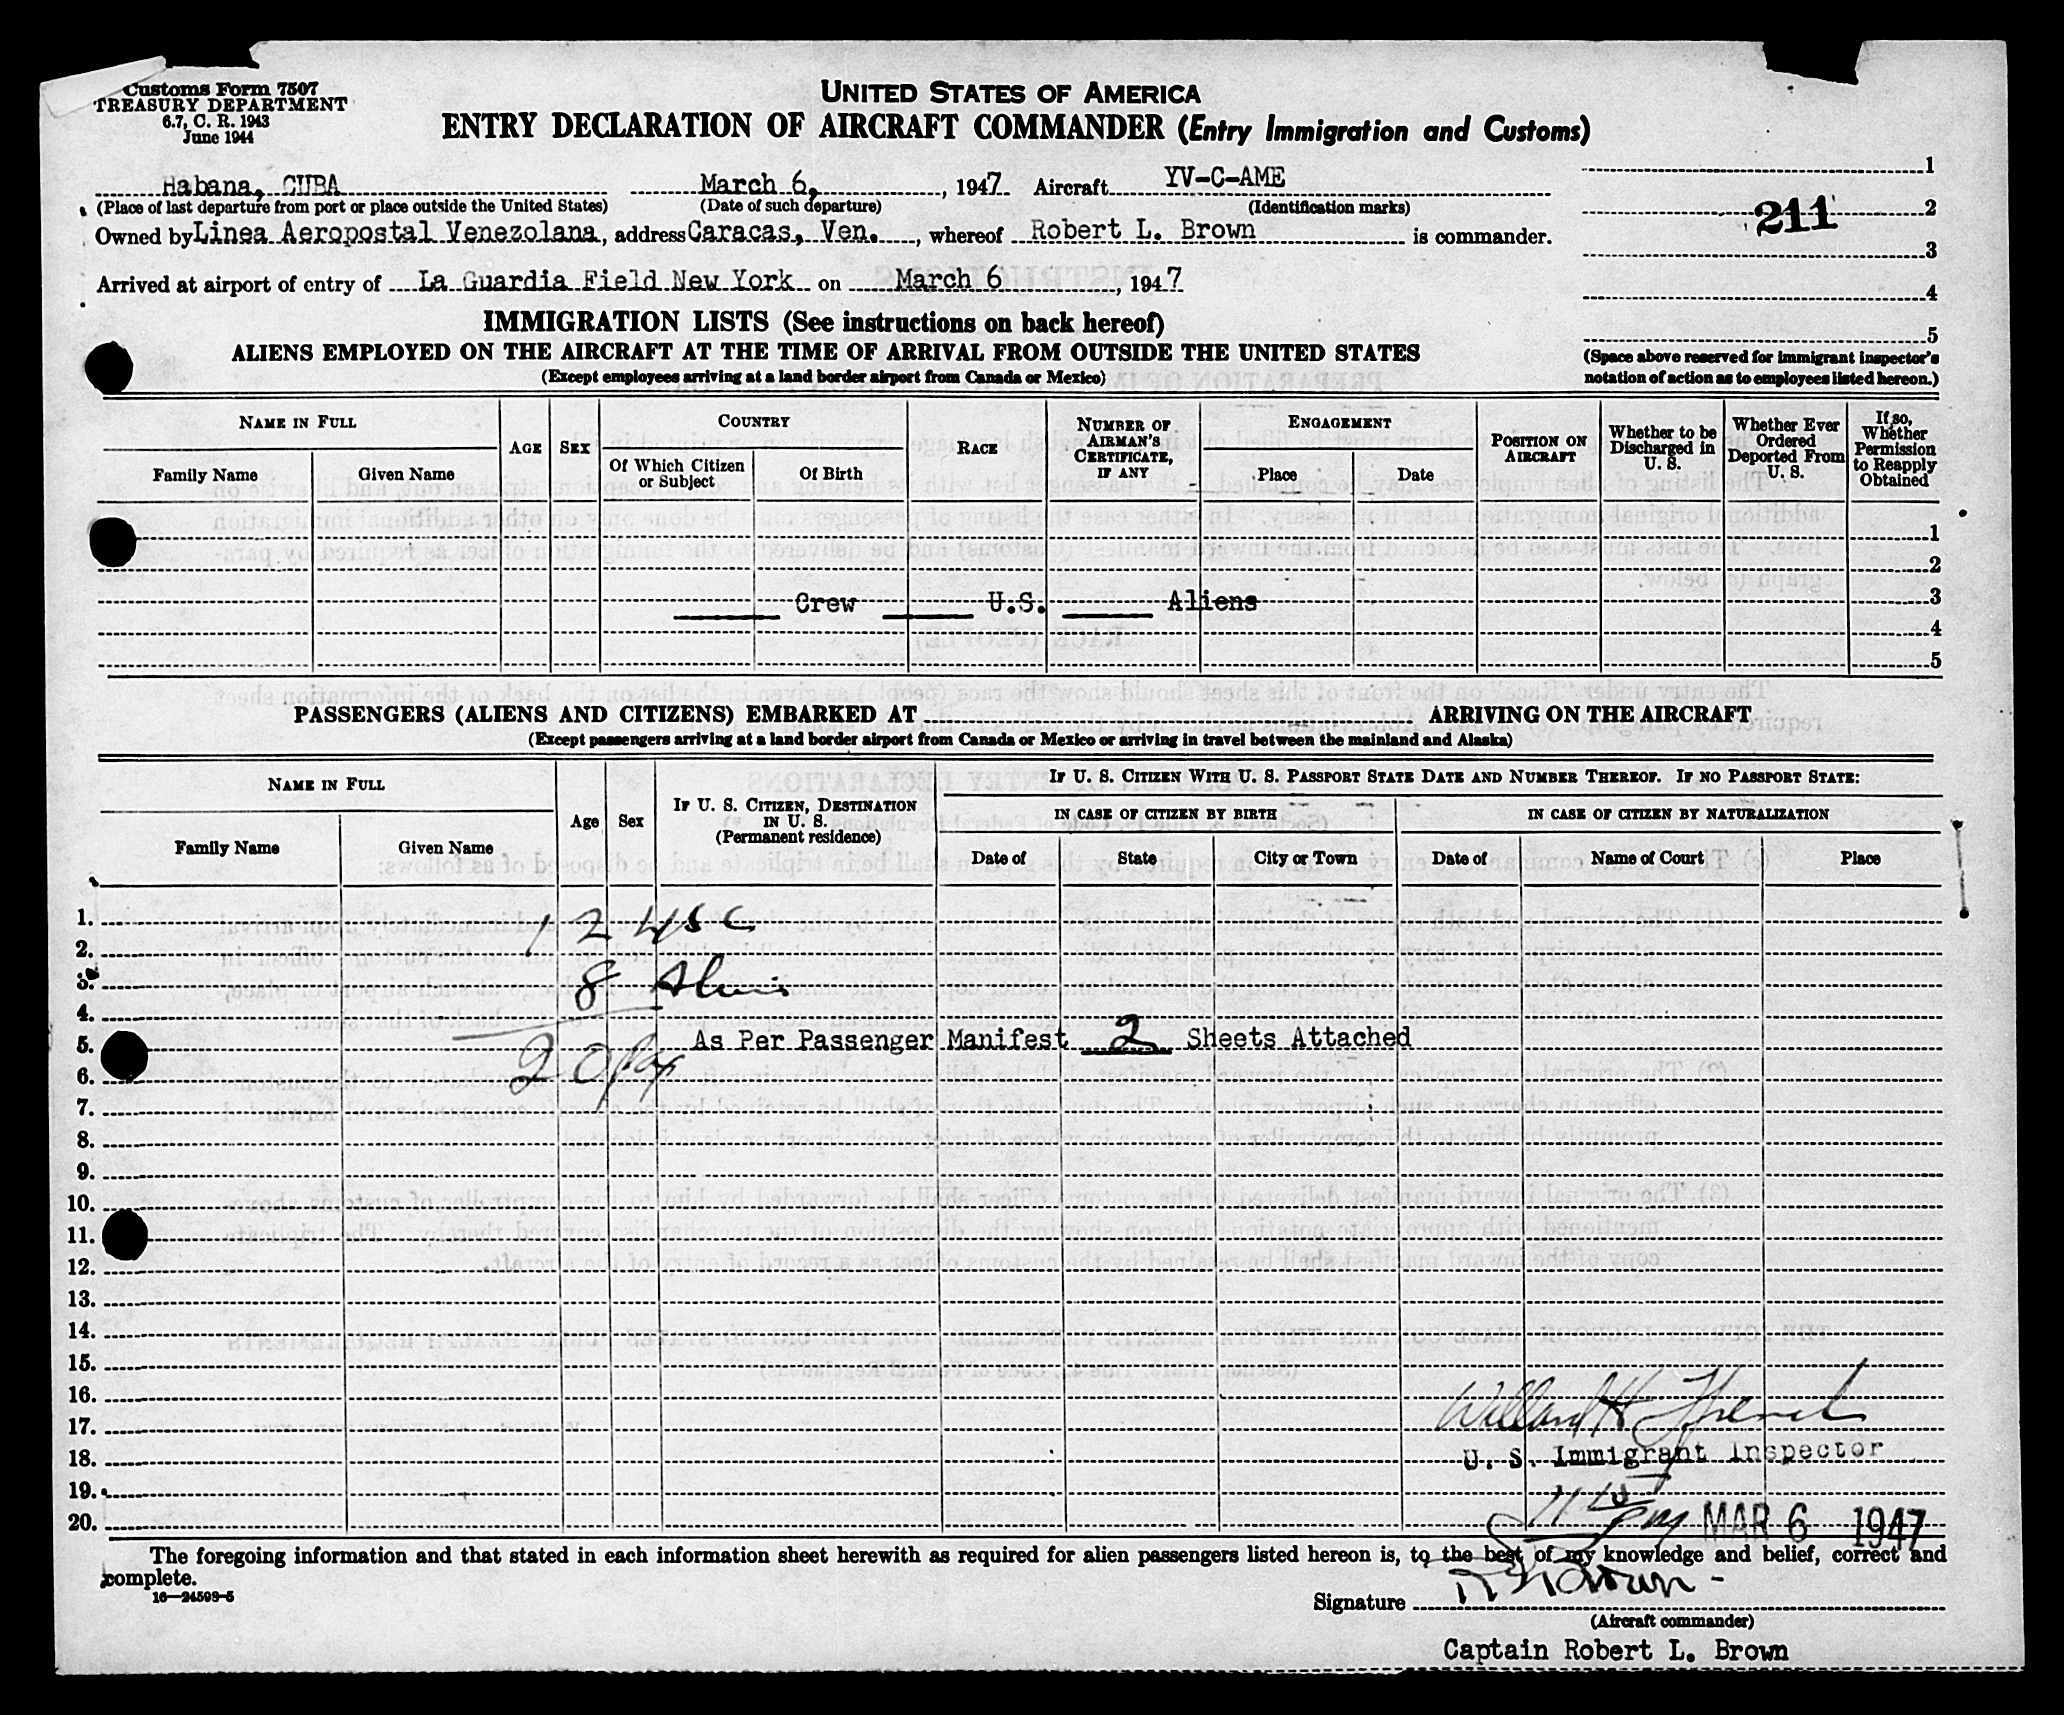 Customs Form 7507
TREASURY DEPARTMENT
6.7, C. R. 1943
June 1944
UNITED STATES OF AMERICA
ENTRY DECLARATION OF AIRCRAFT COMMANDER (Entry Immigration and Customs)
Habana, CUBA March 6, , 1947 Aircraft YV-C-AME
(Place of last departure from port or place outside the United States) (Date of such departure) (Identification marks)
Owned by Linea Aeropostal Venezolana, address Caracas, Ven. , whereof Robert L. Brown is commander.
Arrived at airport of entry of La Guardia Field New York on March 6 , 1947
1
211 2
3
4
5
(Space above reserved for immigrant inspector's
notation of action as to employees listed hereon.)
IMMIGRATION LISTS (See instructions on back hereof)
ALIENS EMPLOYED ON THE AIRCRAFT AT THE TIME OF ARRIVAL FROM OUTSIDE THE UNITED STATES
(Except employees arriving at a land border airport from Canada or Mexico)
NAME IN FULL
Family Name Given Name
AGE SEX
COUNTRY
Of Which Citizen or Subject Of Birth
RACE
NUMBER OF AIRMAN'S CERTIFICATE, IF ANY
ENGAGEMENT
Place Date
POSITION ON AIRCRAFT
Whether to be Discharged in U. S.
Whether Ever Ordered Deported From U. S.
If so, Whether Permission to Reapply Obtained
1
2
Crew U.S. Aliens 3
4
5
PASSENGERS (ALIENS AND CITIZENS) EMBARKED AT ARRIVING ON THE AIRCRAFT
(Except passengers arriving at a land border airport from Canada or Mexico or arriving in travel between the mainland and Alaska)
NAME IN FULL
Family Name Given Name
Age Sex
IF U. S. CITIZEN, DESTINATION IN U. S.
(Permanent residence)
IF U. S. CITIZEN WITH U. S. PASSPORT STATE DATE AND NUMBER THEREOF. IF NO PASSPORT STATE:
IN CASE OF CITIZEN BY BIRTH IN CASE OF CITIZEN BY NATURALIZATION
Date of State City or Town Date of Name of Court Place
1. 12 USC
2.
3. 8 Aliens
4.
5. As Per Passenger Manifest 2 Sheets Attached
6. 20 pax
7.
8.
9.
10.
11.
12.
13.
14.
15.
16.
17. Willard H.
18. U. S. Immigrant Inspector
19.
20. MAR 6 1947
The foregoing information and that stated in each information sheet herewith as required for alien passengers listed hereon is, to the best of my knowledge and belief, correct and
complete.
16—24593-5
Signature R L Brown
(Aircraft commander)
Captain Robert L. Brown